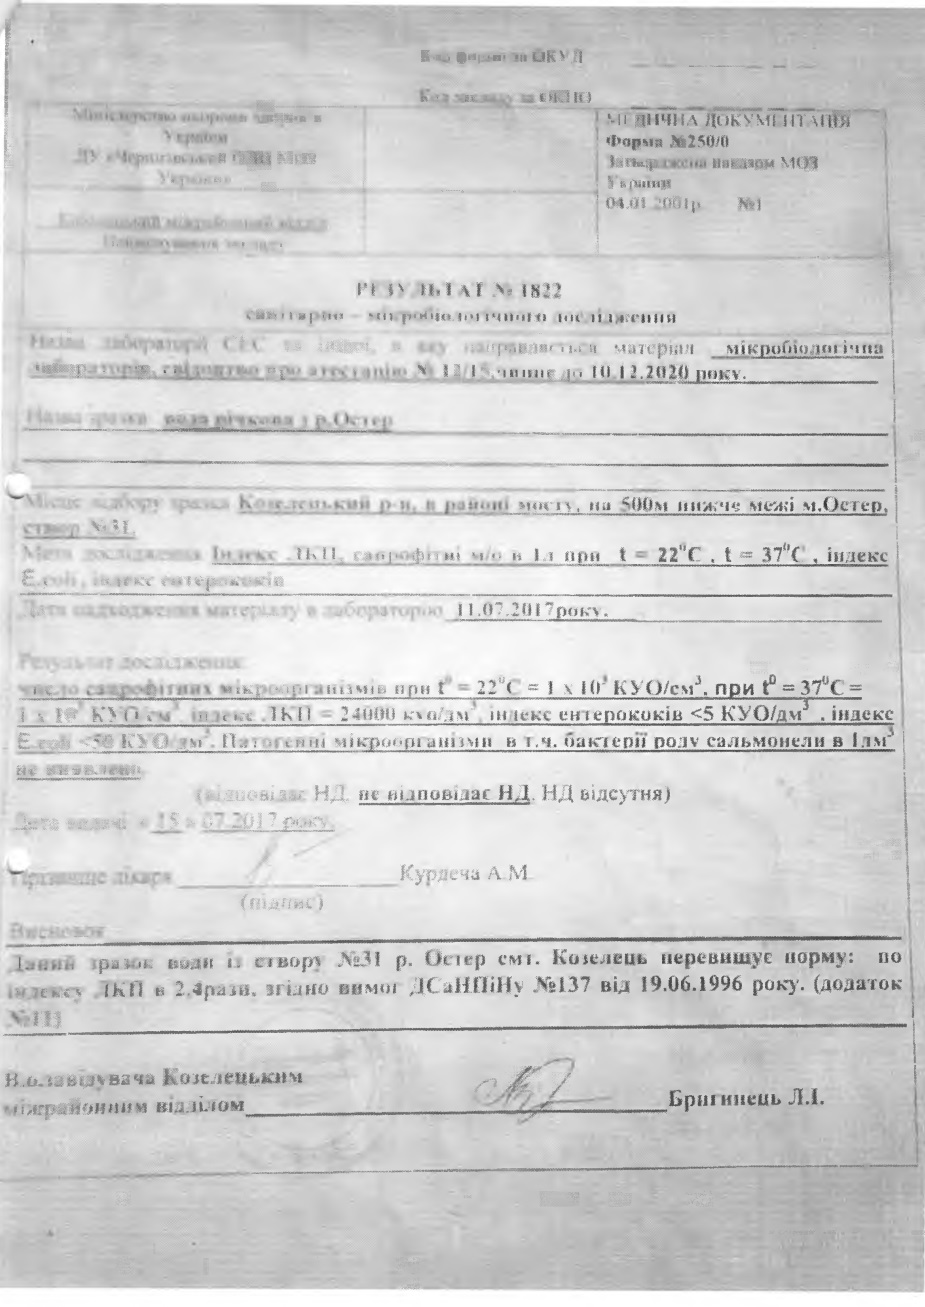 Код форми за ОКУД
Код закладу за ОКПО
Міністерство охорони здоров'я
України
ДУ «Чернігівський ОЛЦ МОЗ
України»
Козелецький міжрайонний відділ
Найменування закладу
МЕДИЧНА ДОКУМЕНТАЦІЯ
Форма №250/0
Затверджена наказом МОЗ
України
04.01.2001р. №1
РЕЗУЛЬТАТ № 1822
санітарно – мікробіологічного дослідження
Назва лабораторії СЕС та іншої, в яку направляється матеріал мікробіологічна
лабораторія, свідоцтво про атестацію № 12/15,чинне до 10.12.2020 року.
Назва зразка вода річкова з р.Остер
Місце відбору зразка Козелецький р-н, в районі мосту, на 500м нижче межі м.Остер,
створ №31.
Мета дослідження Індекс ЛКП, сапрофітні м/о в 1л при t = 22⁰С , t = 37⁰С , індекс
E.coli , індекс ентерококів
Дата надходження матеріалу в лабораторію 11.07.2017року.
Результат дослідження:
число сапрофітних мікроорганізмів при t⁰ = 22⁰С = 1 х 10³ КУО/см³, при t⁰ = 37⁰С =
1 х 10³ КУО/см³, індекс ЛКП = 24000 куо/дм³, індекс ентерококів <5 КУО/дм³ , індекс
E.coli <50 КУО/дм³. Патогенні мікроорганізми в т.ч. бактерії роду сальмонели в 1дм³
не виявлено.
(відповідає НД, не відповідає НД, НД відсутня)
Дата видачі « 15 » 07.2017 року.
Прізвище лікаря Курдеча А.М.
(підпис)
Висновок
Даний зразок води із створу №31 р. Остер смт. Козелець перевищує норму: по
індексу ЛКП в 2,4рази, згідно вимог ДСаНПіНу №137 від 19.06.1996 року. (додаток
№11)
В.о.завідувача Козелецьким
міжрайонним відділом Бригинець Л.І.